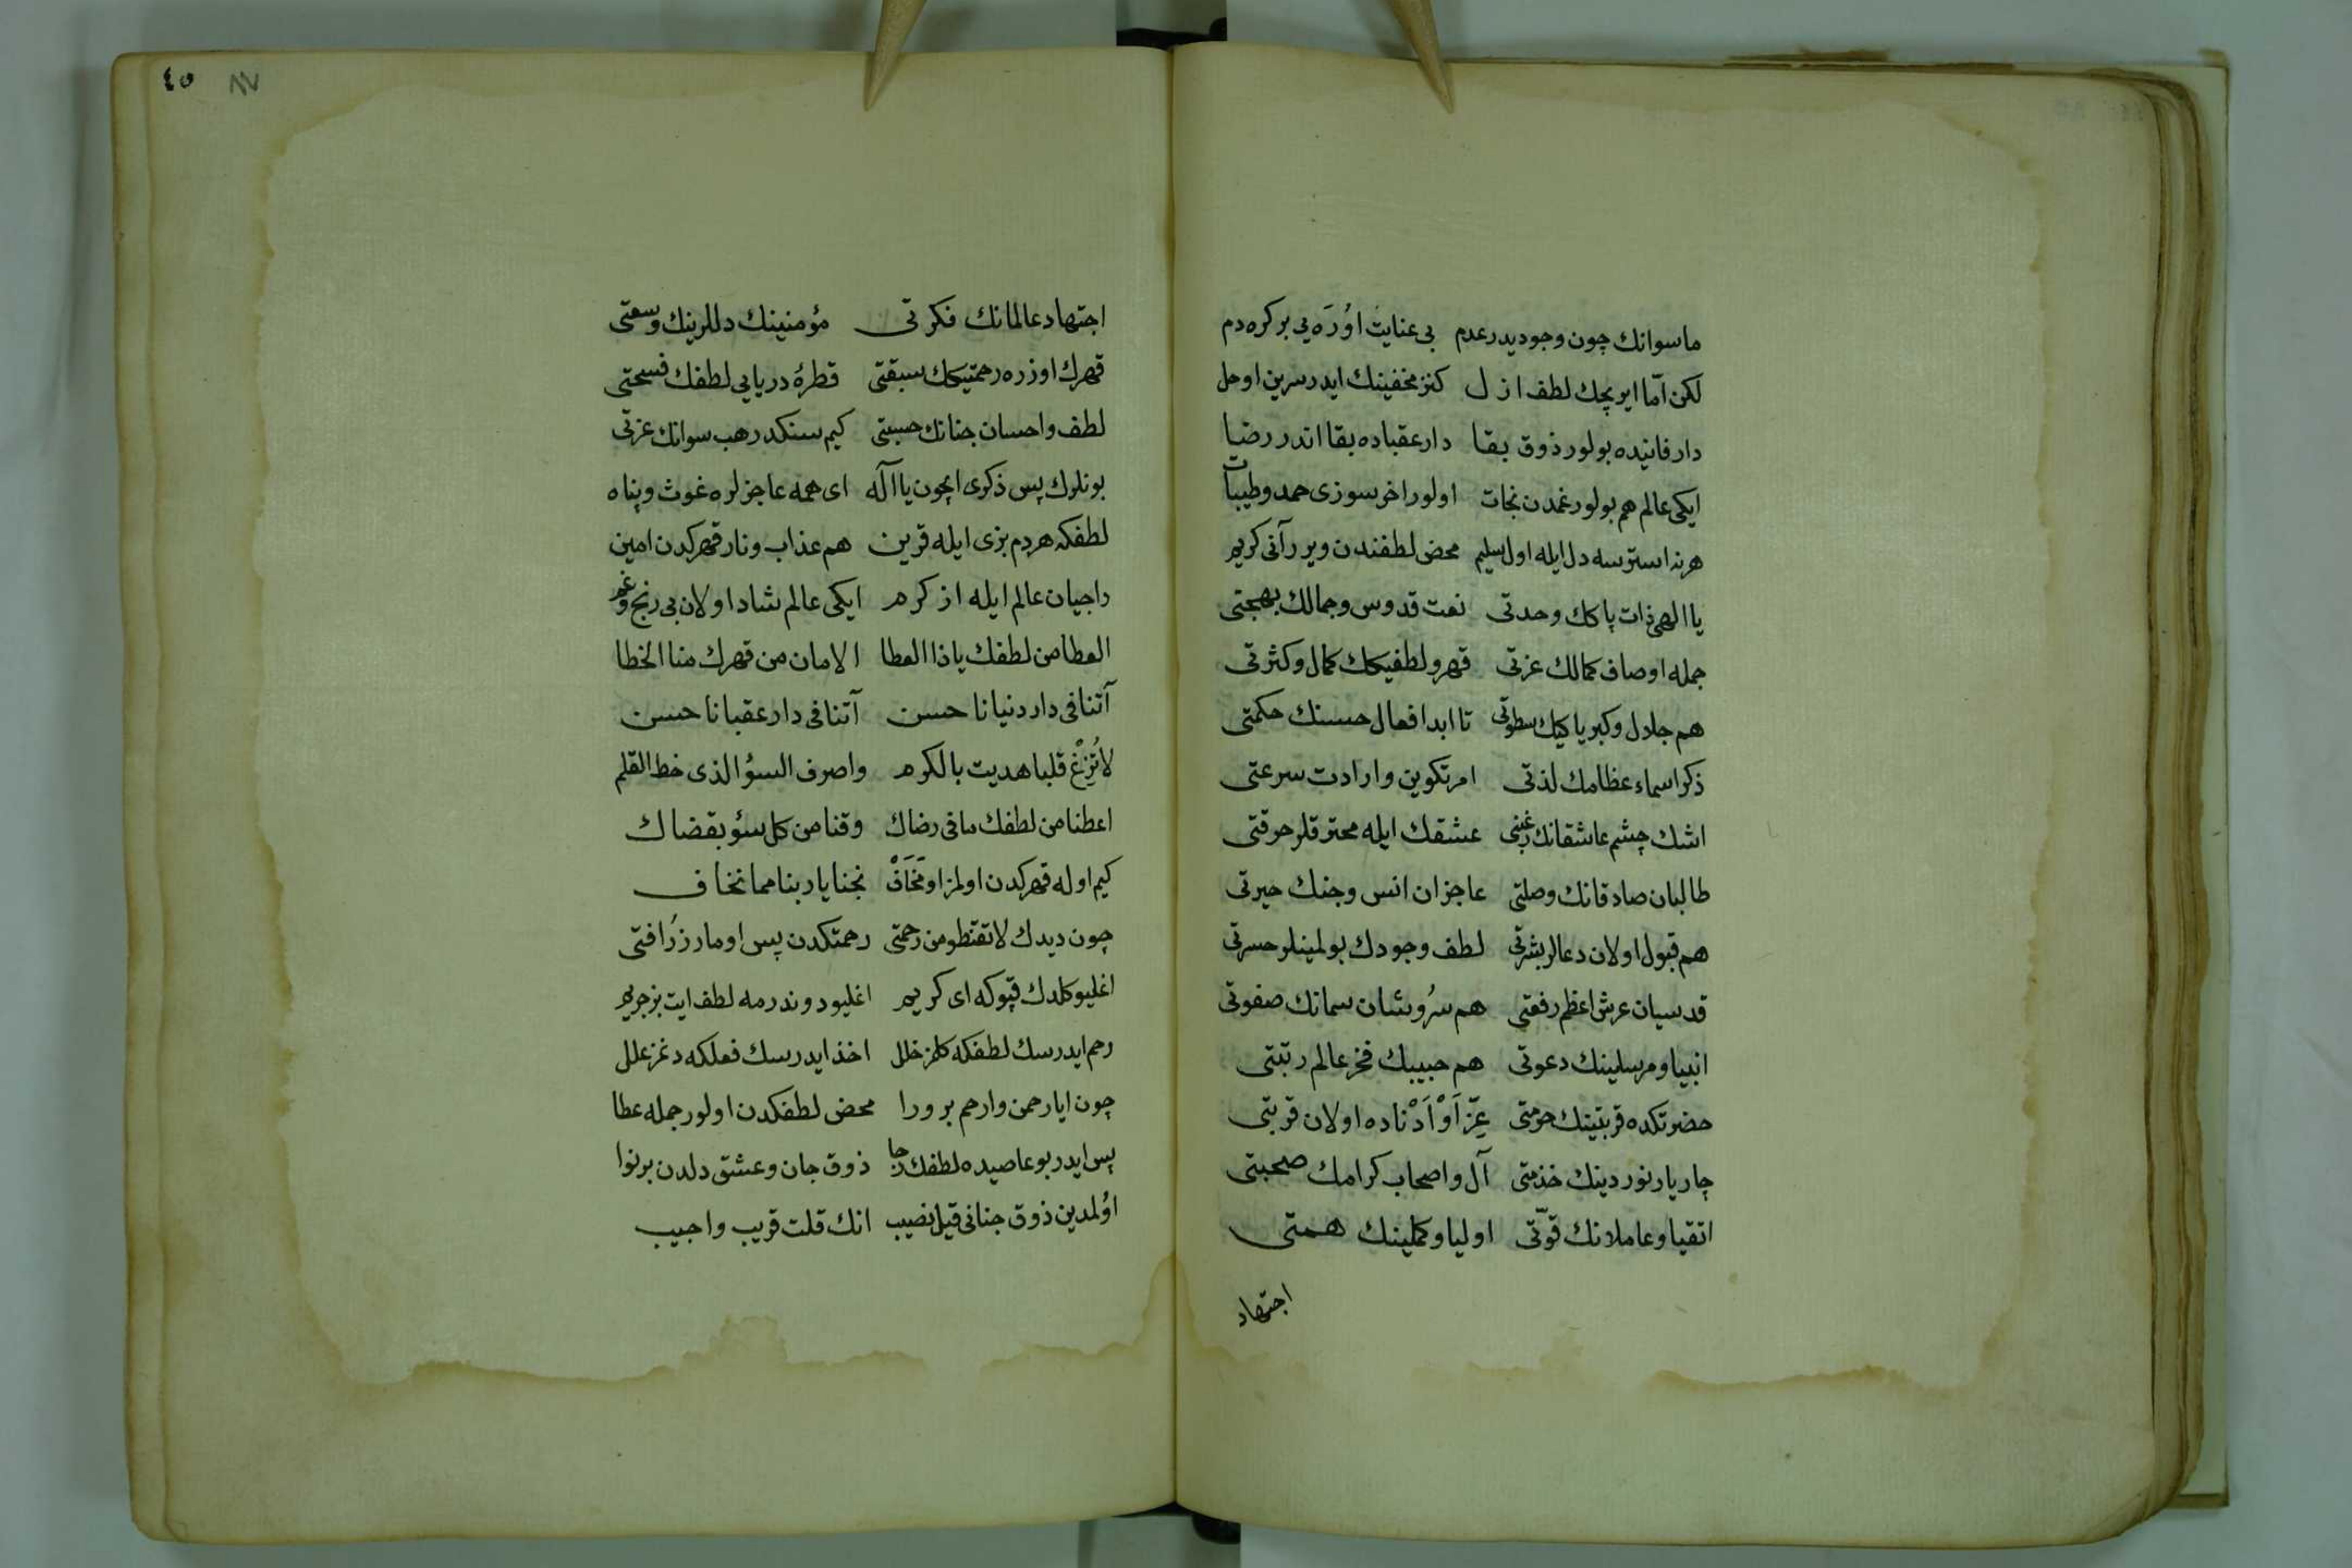 ماسوانك چون وجوديدر عدم بى عنايت اوُرَه يى بر كره دم
لكن امّا ايريجك لطف ازل كنز مخفينك ايدر سرين اوحل
دار فانيده بولور ذوق بقا دار عقباده بقا اندر رضا
ايكى عالم هم بولور غمدن نجات اولور اخر سوزى حمد وطيبات
هر نه استرسه دل ايله اول سليم محض لطفندن ويرر آنى كريم
يا الهى ذات پاكك وحدتى نعت قدوس وجمالك بهجتى
جمله اوصاف كمالك عزتى قهر ولطفيكك كمال وكثرتى
هم جلال وكبرياكيك سطوتى تا ابد افعال حسنك حكمتى
ذكر اسماء عظامك لذتى امر تكوين وارادت سرعتى
اشك چشم عاشقانك رغبتى عشقك ايله محترقلر حرقتى
طالبان صادقانك وصلتى عاجزان انس وجنك حيرتى
هم قبول اولان دعالر بشرتى لطف وجودك بولمينلر حسرتى
قدسيان عرش اعظم رفعتى هم سُروشان سمانك صفوتى
انبيا ومرسلينك دعوتى هم حبيبك فخر عالم رتبتى
حضرتكده قربتينك حرمتى عِزّ اَوْ اَدْناده اولان قربتى
چار يار نور دينك خذمتى آل واصحاب كرامك صحبتى
اتقيا وعاملانك قوّتى اوليا وكملينك همتى
اجتهاد
٤٥ ٨٧
اجتهاد عالمانك فكرتى مؤمنينك دللرينك وسعتى
قهرك اوزره رحمتيكك سبقتى قطرۀ دريايى لطفك فسحتى
لطف واحسان جنانك حسبتى كيم سنكدر هب سوانك عزتى
بونلرك پس ذكرى ايچون يا اله اى همه عاجزلره غوث وپناه
لطفكه هر دم بزى ايله قرين هم عذاب ونار قهركدن امين
راجيان عالم ايله از كرم ايكى عالم شاد اولان بى رنج وغم
العطا من لطفك ياذا العطا الامان من قهرك منا الخطا
آتنا فى دار دنيانا حسن آتنا فى دار عقبانا حسن
لاتُزِغْ قلبا هديت بالكرم واصرف السؤ الذى خط القلم
اعطنا من لطفك مافى رضاك وقنا من كل سؤ بقضاك
كيم اوله قهركدن اولمز او مَخَافْ نجنا ياربنا مما نخاف
چون ديدك لاتقنطو من رحمتى رحمتكدن پس اومارز رُافتى
اغليو كلدك قپوكه اى كريم اغليو دوندرمه لطف ايت بز جريم
رحم ايدرسك لطفكه كلمز خلل اخذ ايدرسك فعلكه دغمز علل
چون ايا رحمن وارحم بر ورا محض لطفكدن اولور جمله عطا
پس ايدر بو عاصيده لطفك رجا ذوق جان وعشق دلدن بر نوا
اوُلمدين ذوق جنانى قيل نصيب انك قلت قريب واجيب